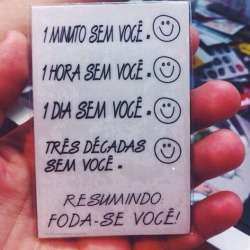 1 MINUTO SEM VOCÊ =
1 HORA SEM VOCÊ =
1 DIA SEM VOCÊ =
TRÊS DÉCADAS
SEM VOCÊ =
RESUMINDO:
FODA-SE VOCÊ!